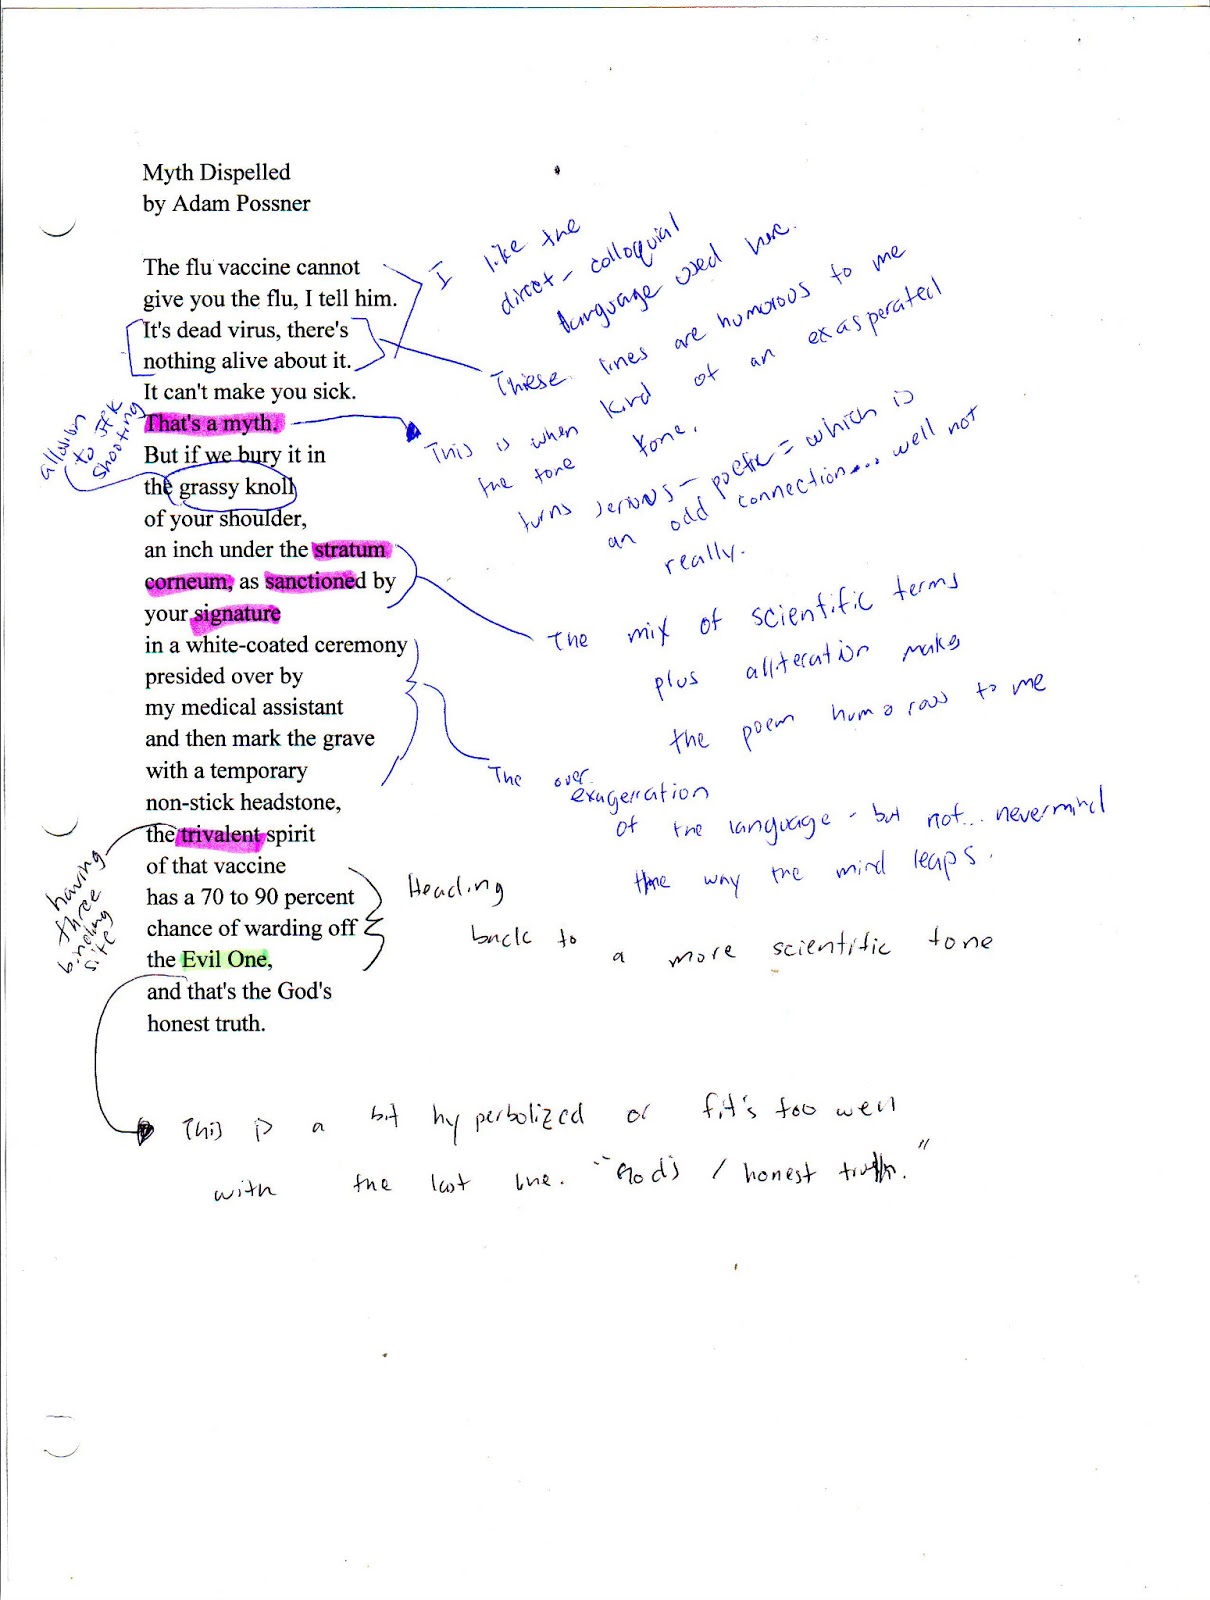 Myth Dispelled
by Adam Possner
The flu vaccine cannot
give you the flu, I tell him.
It's dead virus, there's
nothing alive about it.
It can't make you sick.
That's a myth.
But if we bury it in
the grassy knoll
of your shoulder,
an inch under the stratum
corneum, as sanctioned by
your signature
in a white-coated ceremony
presided over by
my medical assistant
and then mark the grave
with a temporary
non-stick headstone,
the trivalent spirit
of that vaccine
has a 70 to 90 percent
chance of warding off
the Evil One,
and that's the God's
honest truth.
I like the
direct - colloquial
language used here.
These lines are humorous to me
kind of an exasperated
tone.
This is when
the tone
turns serious - poetic = which is
an odd connection... well not
really.
allusion
to JFK
shooting
The mix of scientific terms
plus alliteration makes
the poem humorous to me
The over
exageration
of the language - but not... nevermind
the way the mind leaps.
having
three
binding
site
Heading
back to
a more scientific tone
This is a bit hyperbolized or fit's too well
with the last line. "God's / honest truth."